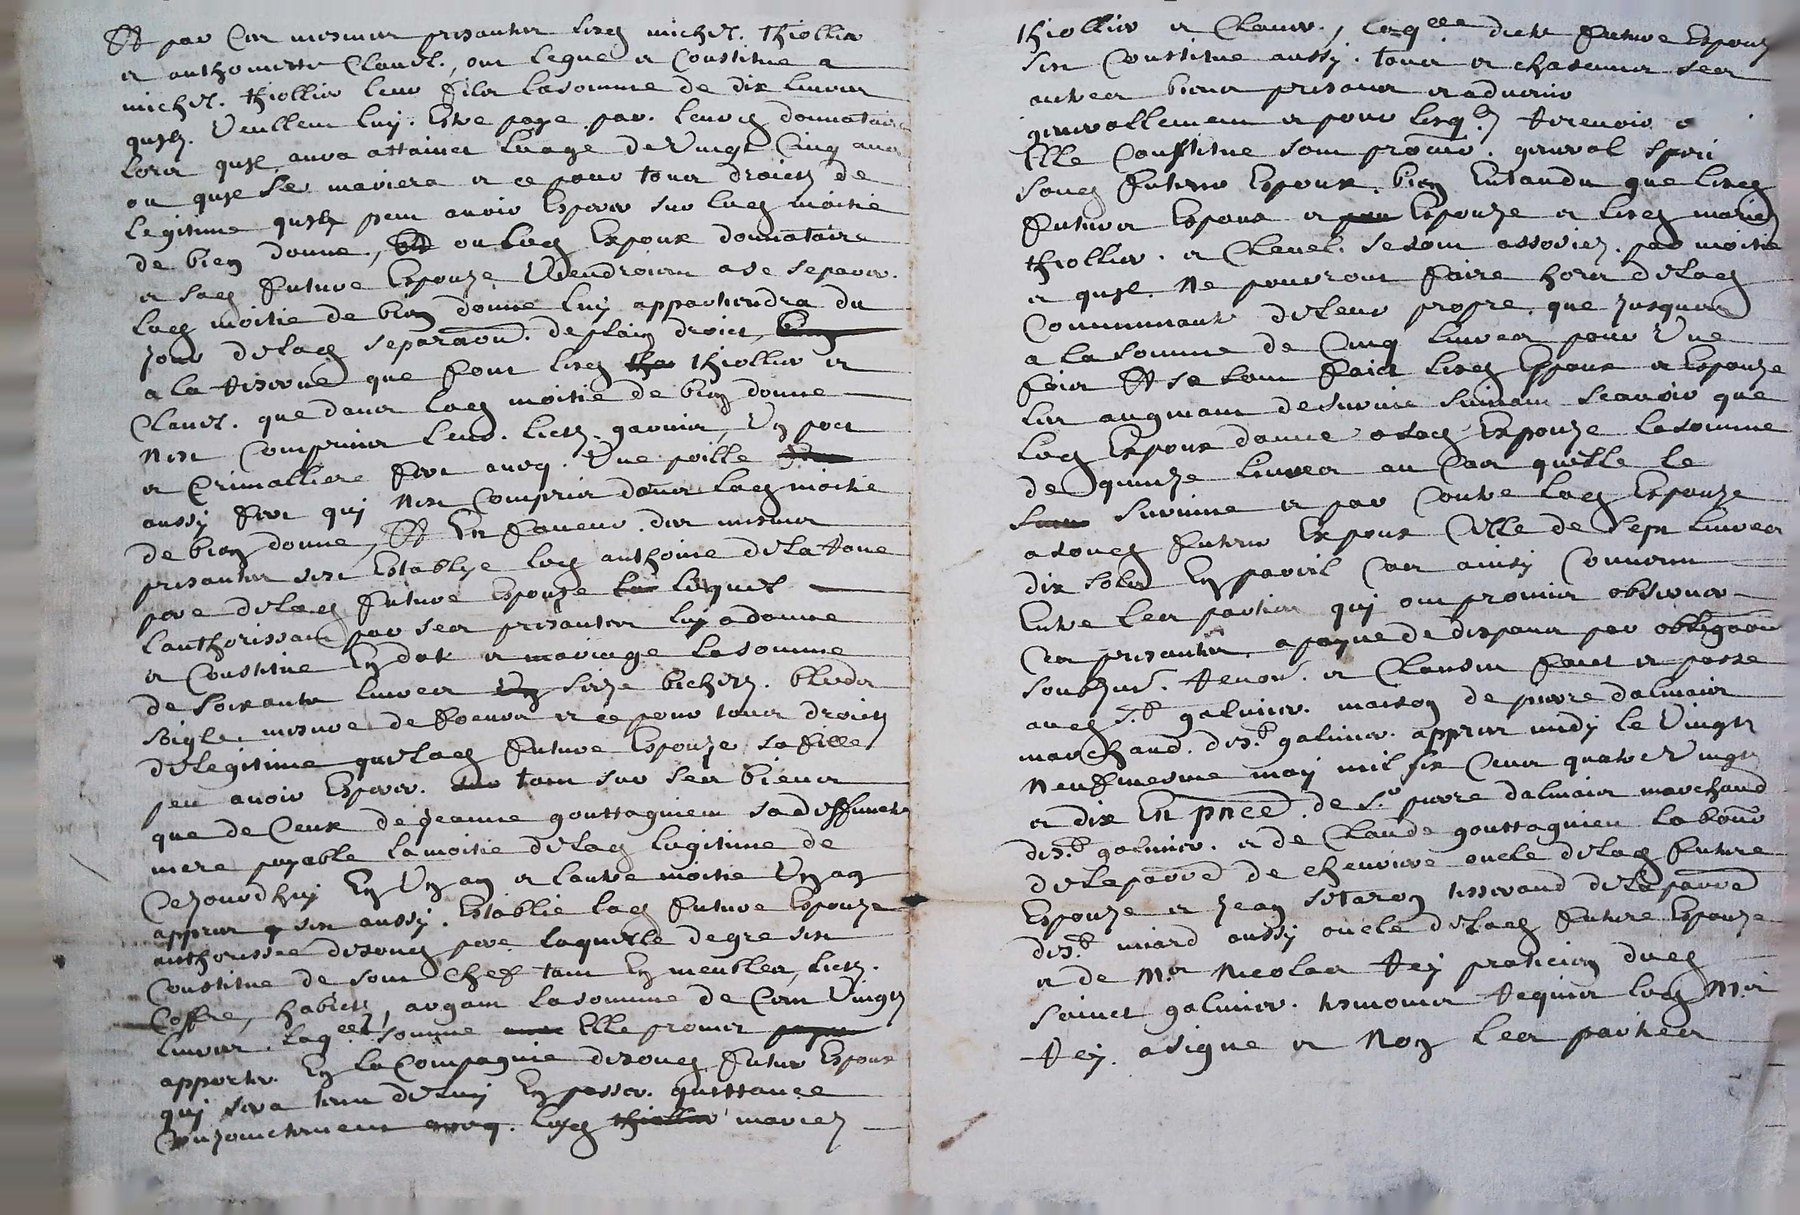 Et par ces mesmes presantes lesd michel thiollier
et anthoinette Clavel, ont legue et Constitue a
michel thiollier leur filz la somme de dix livres
quilz veullent luy estre paye par leursd donnataires
lors quil aura attainct leage de vingt Cinq ans
ou quil se mariera et ce pour tous droictz de
legitime quilz peut avoir Esperer sur lad moitie
de bien donne, ou led Espoux donnataire
et sad future Espouze viendroient a se separer
lad moitie de bien donne luy appartiendra du
jour de lad separaon de plain droict,
a la reserve que font lesd thiollier et
Clavel que dans lad moitie de bien donne
nest Comprins leurs lictz garnis, un pot
et Crimalliere fert avecq une poille
aussy fert qui nest Compris dans lad moitie
de bien donne, Et En faveur des mesmes
presantes sest Establye led anthoine de la roue
pere de lad future Espouze lequel
lauthorissant par ses presantes luy a donne
et Constitue En dot et mariage la somme
de soixante livres seize bichetz bledz
seigle mesure de et ce pour tous droictz
de legitime que lad future Espouze sa fille
peu avoir Esperer tant sur ses biens
que de Ceux de jeanne gouttagnieu sa deffuncte
mere payable la moitie de lad legitime de
Cejourdhuy En un an et lautre moitie un an
appres sest aussy Establie lad future Espouze
authorissee de sond pere laquelle de gre sest
Constitue de son Chef tant En meubles, lictz
Coffre, habictz, argant la somme de Cent vingtz
livres laqelle somme Elle promet
apporter En la Compagnie de sond futur Espoux
qui sera tenu de luy En passer quittance
Conjoinctement lesd mariez
thiollier et Clavel, lesqelle dicte future Espouze
sest Constitue aussy tous et chascungs ses
autres biens presans et advenir
generallement et pour lesqlz revoir
Elle Constitue son procur general special
sond futur Espoux, bien Entandu que lesd
futurs Espoux et Espouze et lesd mariez
thiollier et Clavel se sont associez par moitie
et quil ne pourront faire hors de lad
Communaute de leur propre que jusques
a la somme de Cinq livres pour une
fois Et se sont faict lesd Espoux et Espouze
les augmant de survie suivant scavoir que
led Espoux donne a sad Espouze la somme
de quinze livres au Cas quelle le
survive et par Contre lad Espouze
a sond futur Espoux Celle de sept livres
dix solz En pareil Cas ainsy Convenu
Entre les parties qui ont promis observer
Ces presantes a payne de despans par obligaon
soubzmis renon et Clauses faict et passe
aud St galmier maison de pierre dalmais
marchand dud St galmier appres midy le vingtz
neufviesme may mil six Cens quatre vingtz
et dix En pnce de Sr pierre dalmais marchand
dud St galmier et de Claude gouttagnieu laboureur
de la parre de Chevriere oncle de lad future
Espouze et jean sitaron tisserand de la parre
de St miard aussy oncle de lad future Espouze
et de Mr nicolas rey praticien dud
sainct galmier tesmoins requis led Mr
rey a signe et non les parties